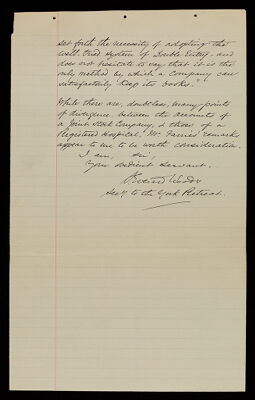 set forth the necessity of adopting the
well tried system of Double Entry, and
does not hesitate to say that it is the
only method by which a Company can
satisfactorily keep its books."
While there are, doubtless, many points
of divergence, between the accounts of
a Joint Stock Company, & those of a
Registered Hospital, Mr. remarks
appear to me to be worth consideration.
I am, Sir,
Your obedient Servant.
Secy. to the York Retreat.